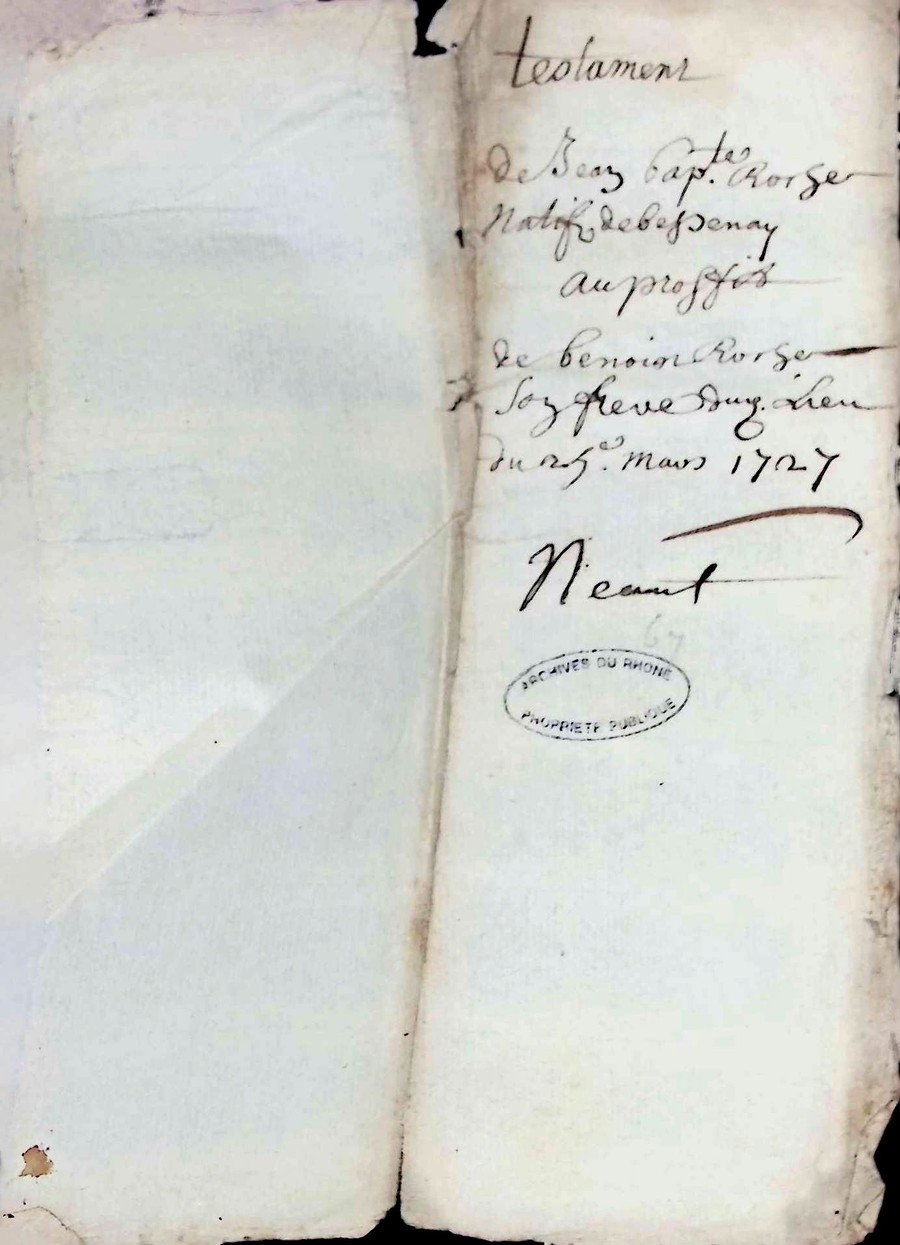 testament
de Jean bap.te Rorhe
Natif de bessenay
au proffit
de benoict Rorhe
son frere dud. Lieu
du 25e. mars 1727
Neant
67
ARCHIVES DU RHONE
PROPRIETE PUBLIQUE